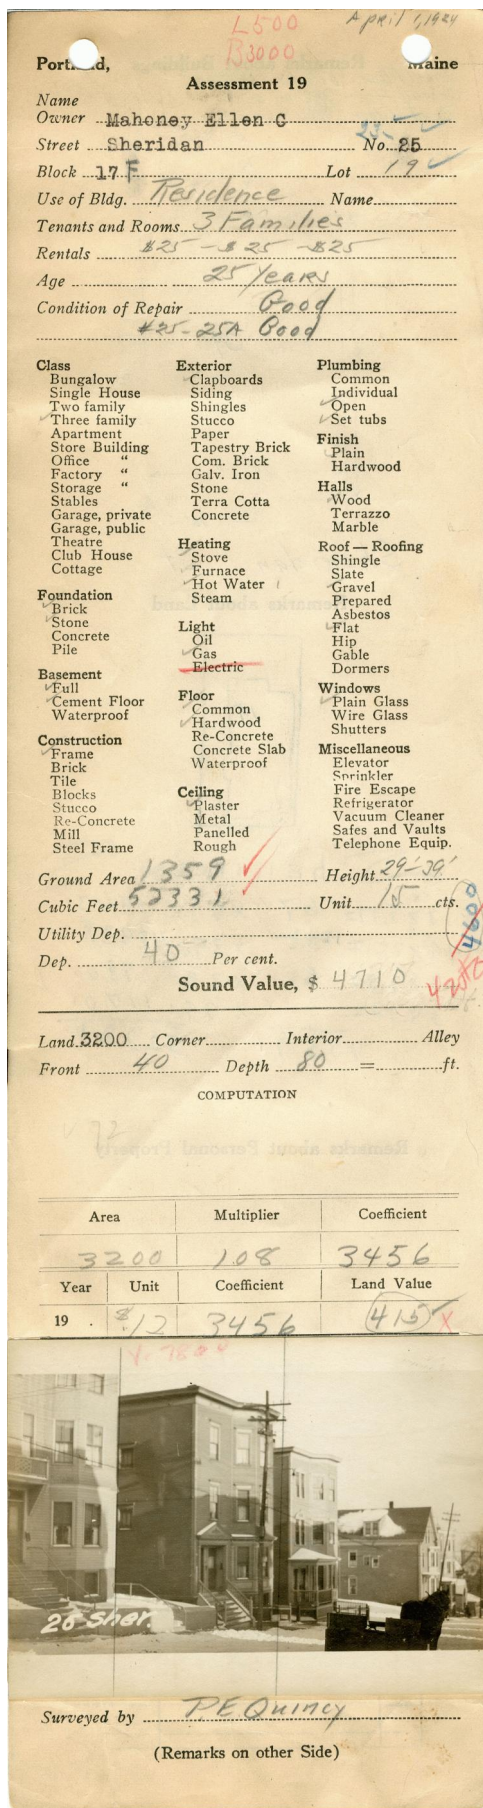 April 1, 1924
L500
B3000
Portland, Maine
Assessment 19
Name
Owner Mahoney Ellen C
Street Sheridan No. 25
Block 17 F Lot 19
Use of Bldg. Residence Name
Tenants and Rooms 3 Families
Rentals $25 - $25 - $25
Age 25 years
Condition of Repair Good
#25-25A Good
Class
Bungalow
Single House
Two family
Three family
Apartment
Store Building
Office "
Factory "
Storage "
Stables
Garage, private
Garage, public
Theatre
Club House
Cottage
Foundation
Brick
Stone
Concrete
Pile
Basement
Full
Cement Floor
Waterproof
Construction
Frame
Brick
Tile
Blocks
Stucco
Re-Concrete
Mill
Steel Frame
Exterior
Clapboards
Siding
Shingles
Stucco
Paper
Tapestry Brick
Com. Brick
Galv. Iron
Stone
Terra Cotta
Concrete
Heating
Stove
Furnace
Hot Water
Steam
Light
Oil
Gas
Electric
Floor
Common
Hardwood
Re-Concrete
Concrete Slab
Waterproof
Ceiling
Plaster
Metal
Panelled
Rough
Plumbing
Common
Individual
Open
Set tubs
Finish
Plain
Hardwood
Halls
Wood
Terrazzo
Marble
Roof — Roofing
Shingle
Slate
Gravel
Prepared
Asbestos
Flat
Hip
Gable
Dormers
Windows
Plain Glass
Wire Glass
Shutters
Miscellaneous
Elevator
Sprinkler
Fire Escape
Refrigerator
Vacuum Cleaner
Safes and Vaults
Telephone Equip.
Ground Area 1359 Height 29'-39'
Cubic Feet 52331 Unit 15 cts.
Utility Dep. 4600
Dep. 40 Per cent.
Sound Value, $ 4710
Land 3200 Corner Interior Alley
Front 40 Depth 80 = ft.
COMPUTATION
Area Multiplier Coefficient
3200 1.08 3456
Year Unit Coefficient Land Value
19 . $.12 3456 415 X
25 Sher.
Surveyed by P E Quincy
(Remarks on other Side)